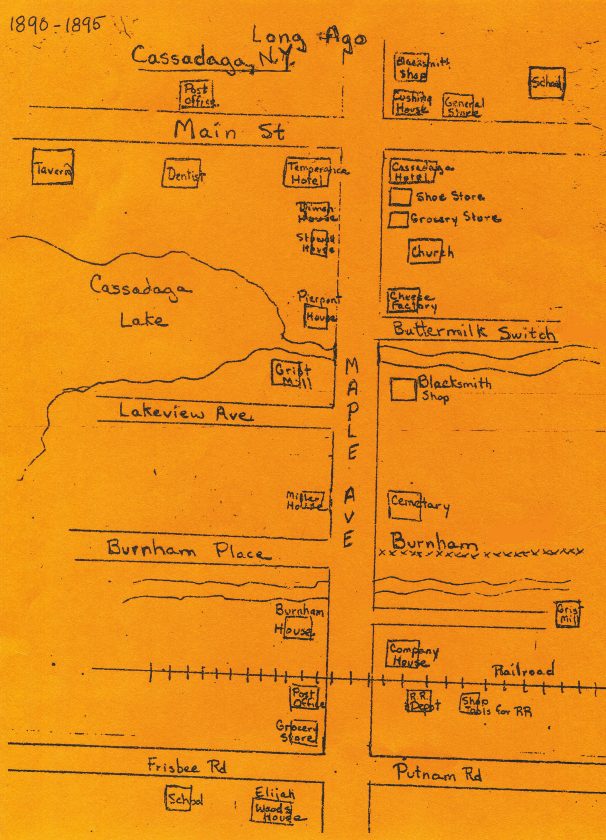 1890-1895
Long Ago
Cassadaga, N.Y.
Post
Office
Blacksmith
Shop
School
Cushing
House
General
Store
Main St
Tavern
Dentist
Temperance
Hotel
Cassadaga
Hotel
Shoe Store
Grocery Store
House
House
Church
Cassadaga
Lake
Pierpont
House
Cheese
Factory
Buttermilk Switch
Grist
Mill
Blacksmith
Shop
MAPLE AVE
Lakeview Ave
Miller
House
Cemetary
Burnham Place
Burnham
Burnham
House
Grist
Mill
Company
House
Railroad
Post
Office
R.R.
Depot
Shop
for RR
Grocery
Store
Frisbee Rd
Putnam Rd
School
Elijah
Woods
House